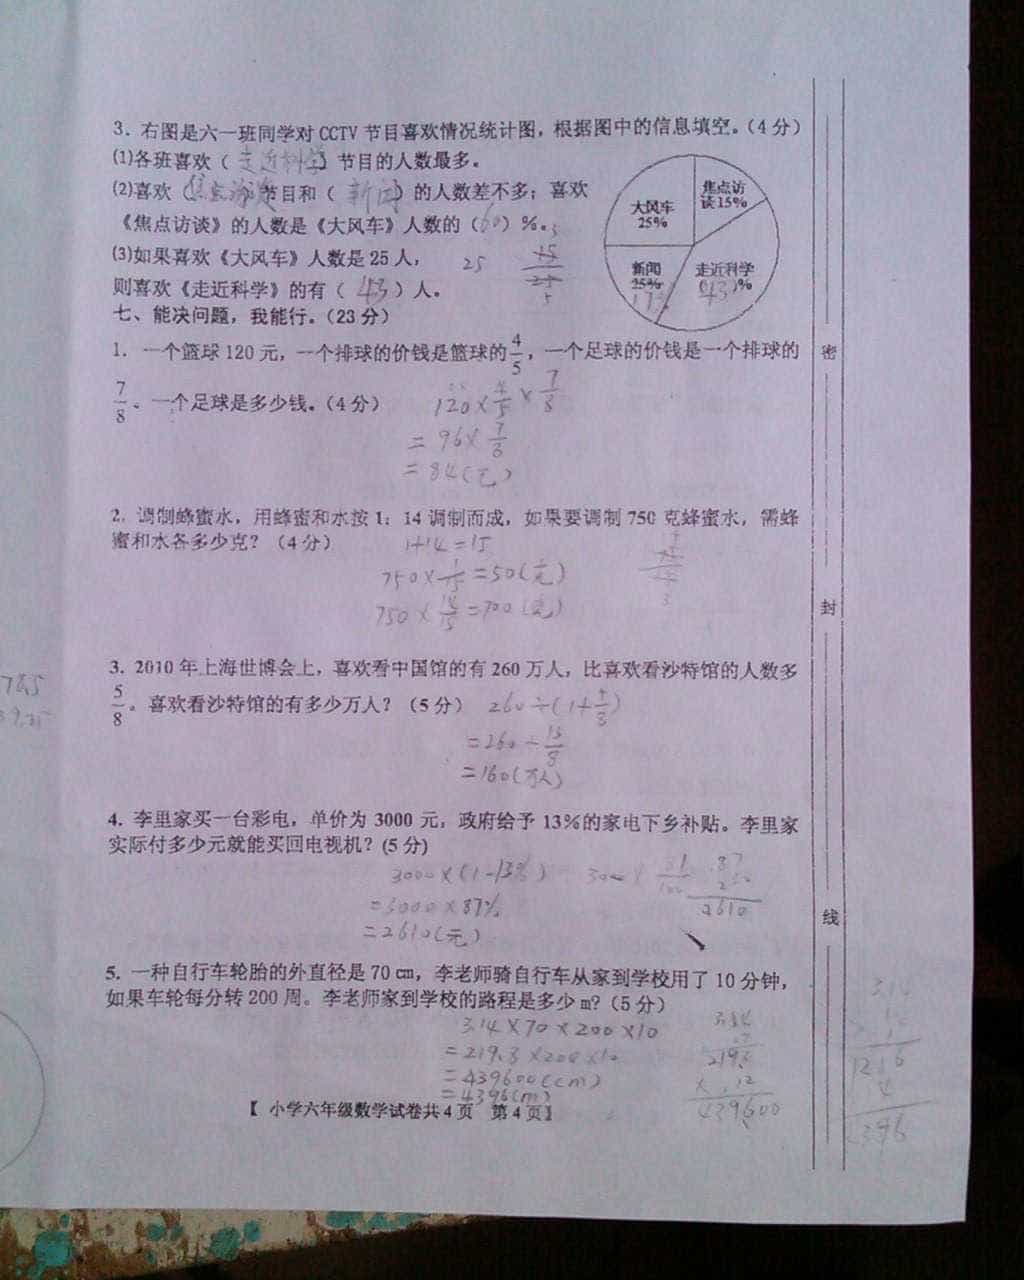 3. 右图是六一班同学对 CCTV 节目喜欢情况统计图，根据图中的信息填空。(4 分)
⑴各班喜欢（ 走近科学 ）节目的人数最多。
⑵喜欢（焦点访谈）节目和（ 新闻 ）的人数差不多；喜欢
《焦点访谈》的人数是《大风车》人数的（60）%。
⑶如果喜欢《大风车》人数是 25 人，
则喜欢《走近科学》的有（ 43 ）人。
25
3
15
25
5
大风车
25%
焦点访
谈15%
新闻
25%
17%
走近科学
(43)%
七、能决问题，我能行。(23 分)
1. 一个篮球 120 元，一个排球的价钱是篮球的4/5，一个足球的价钱是一个排球的
7/8。一个足球是多少钱。(4 分)
120×4/5×7/8
=96×7/8
=84(元)
2. 调制蜂蜜水，用蜂蜜和水按 1：14 调制而成，如果要调制 750 克蜂蜜水，需蜂
蜜和水各多少克？（4 分）
1+14=15
750×1/15=50(克)
750×14/15=700(克)
3. 2010 年上海世博会上，喜欢看中国馆的有 260 万人，比喜欢看沙特馆的人数多
5/8。喜欢看沙特馆的有多少万人？（5 分）
260÷(1+5/8)
=260÷13/8
=160(万人)
4. 李里家买一台彩电，单价为 3000 元，政府给予 13%的家电下乡补贴。李里家
实际付多少元就能买回电视机？(5 分)
3000×(1-13%)
=3000×87%
=2610(元)
2610
5. 一种自行车轮胎的外直径是 70 ㎝，李老师骑自行车从家到学校用了 10 分钟，
如果车轮每分转 200 周。李老师家到学校的路程是多少 m?（5 分）
3.14×70×200×10
=219.8×200×10
=439600(cm)
=4396(m)
439600
【 小学六年级数学试卷共 4 页 第 4 页】
密
封
线